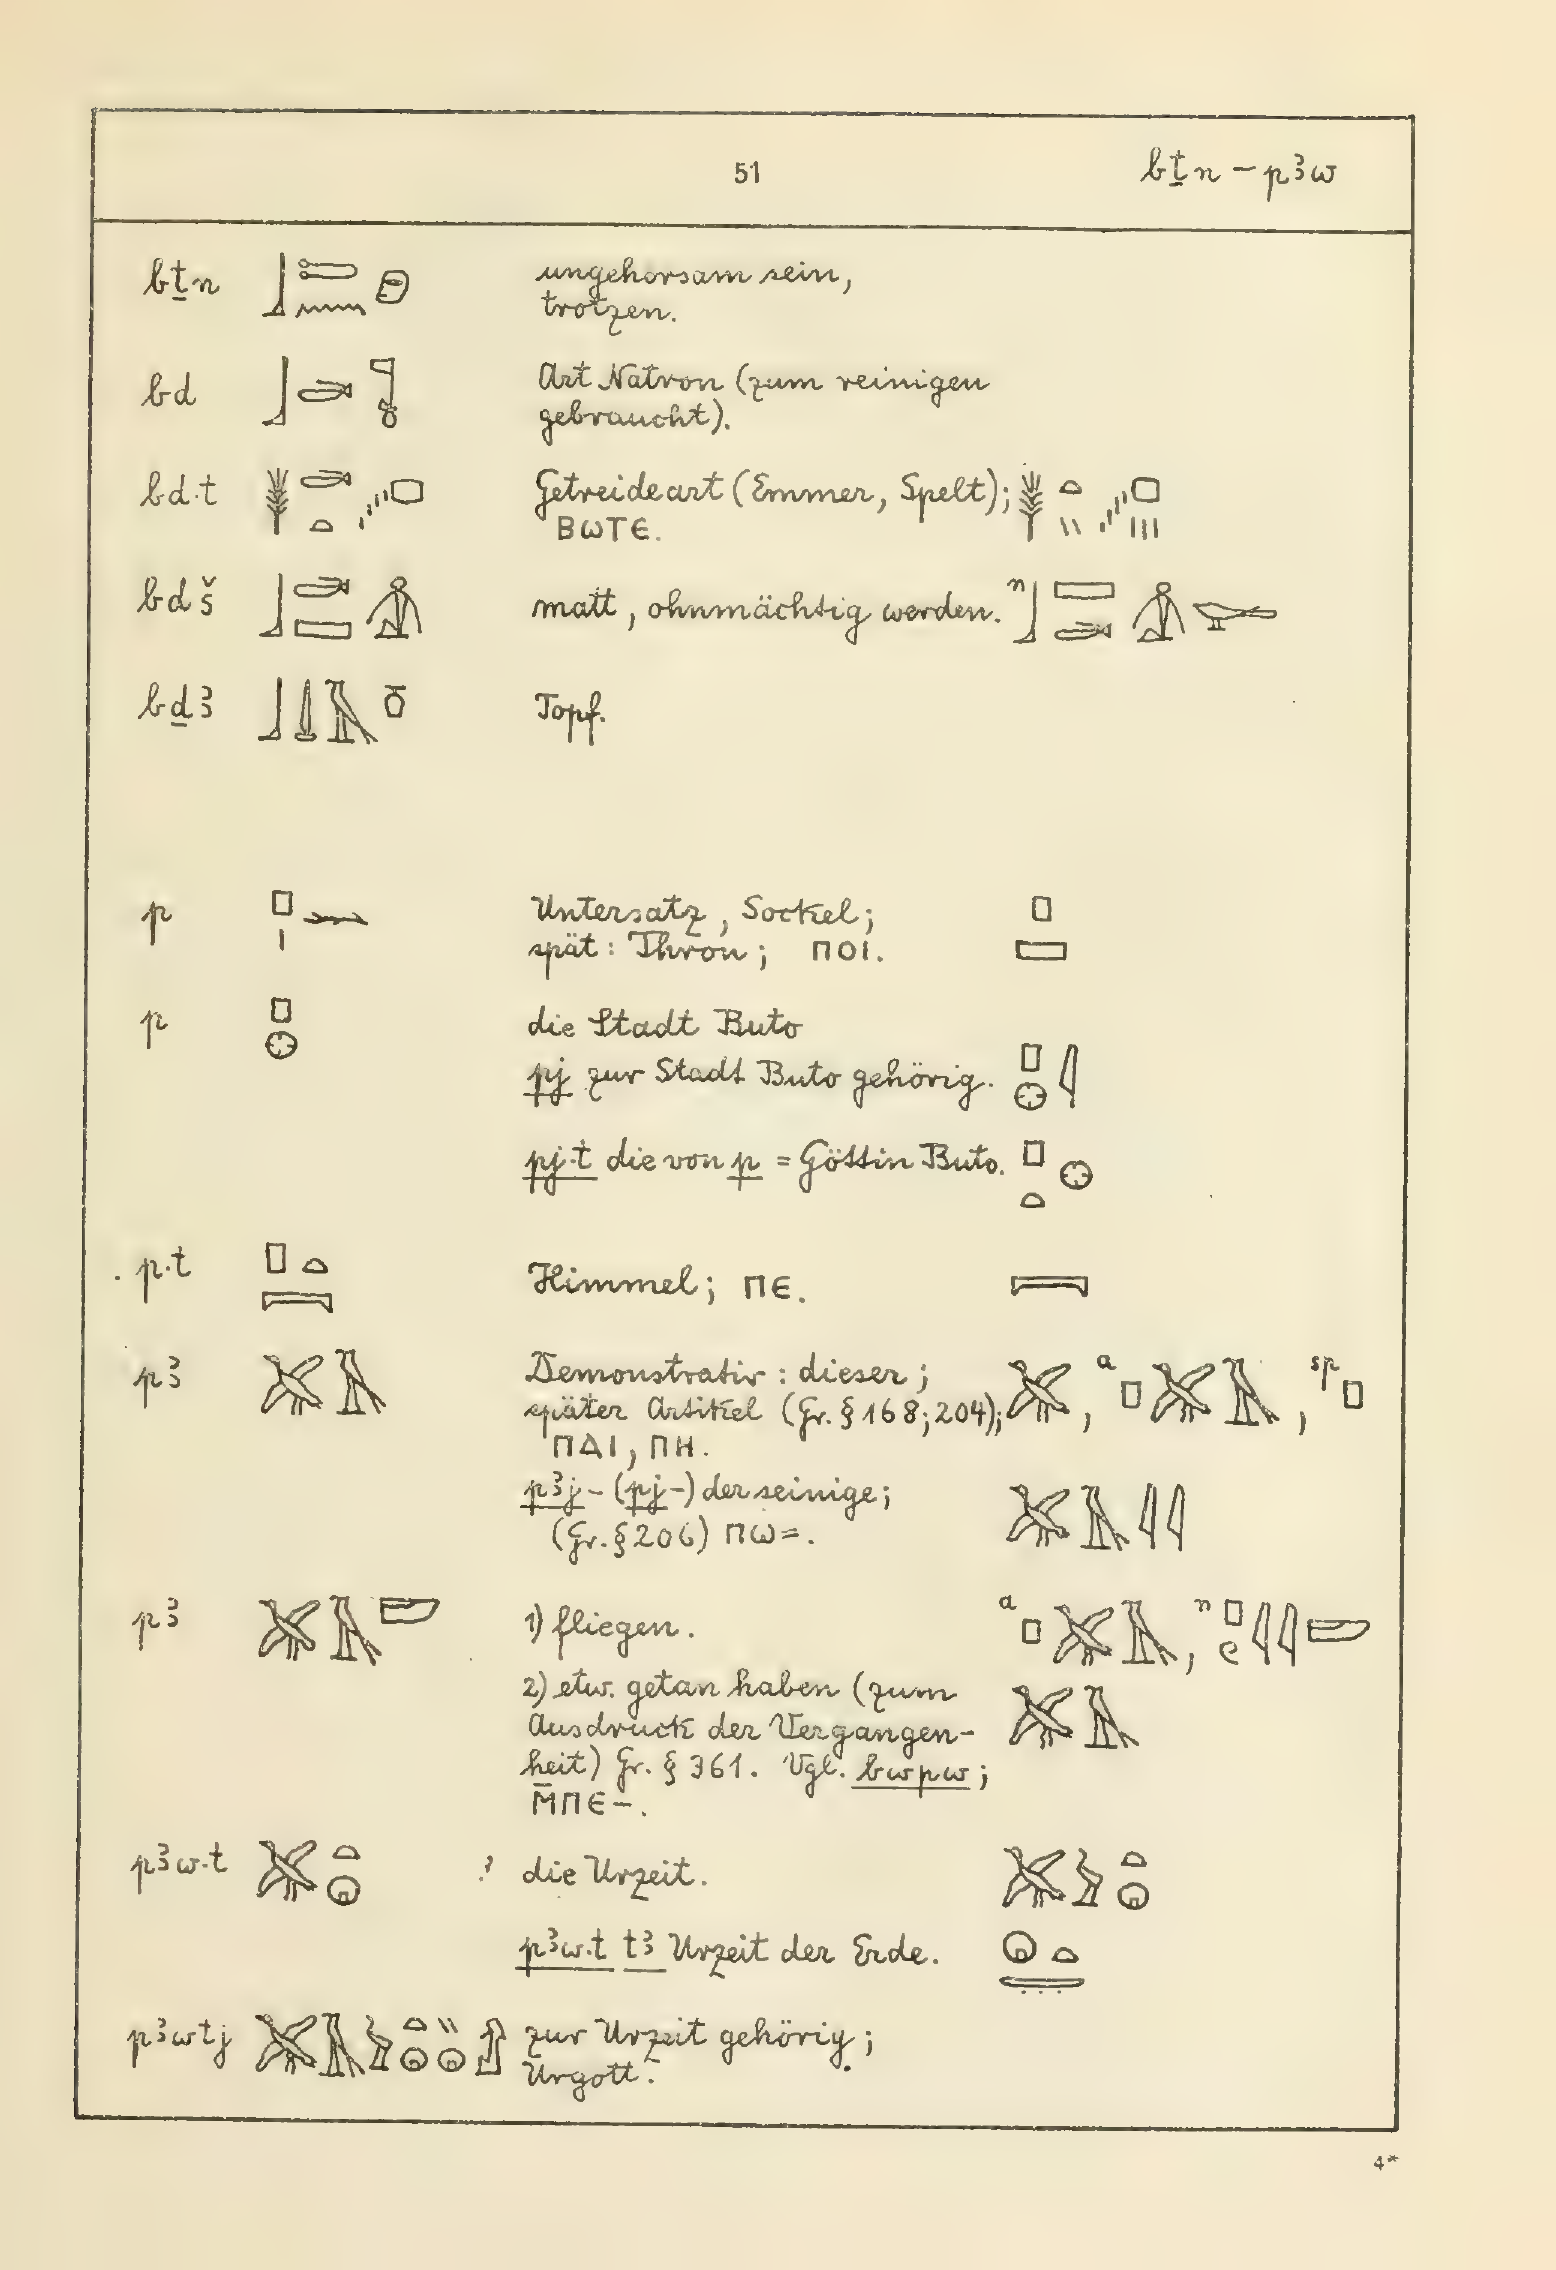 51 bṯn – pꜣw
bṯn ungehorsam sein,
trotzen.
bd Art Natron (zum reinigen
gebraucht).
bd·t Getreideart (Emmer, Spelt);
ⲂⲰⲦⲈ.
bdš matt, ohnmächtig werden. n
bḏꜣ Topf.
p Untersatz, Sockel;
spät: Thron; ⲠⲞⲒ.
p die Stadt Buto
pj zur Stadt Buto gehörig.
pj·t die von p = Göttin Buto.
p·t Himmel; ⲠⲈ.
pꜣ Demonstrativ: dieser; , a , sp
später Artikel (Gr. § 168; 204);
ⲠⲀⲒ, ⲠⲎ.
pꜣj- (pj-) der seinige;
(Gr. § 206) ⲠⲰ=.
pꜣ 1) fliegen. a , n
2) etw. getan haben (zum
Ausdruck der Vergangen-
heit) Gr. § 361. Vgl. bwpw;
Ⲙ̄ⲠⲈ-.
pꜣw·t ? die Urzeit.
pꜣw·t tꜣ Urzeit der Erde.
pꜣwtj zur Urzeit gehörig;
Urgott.
4*